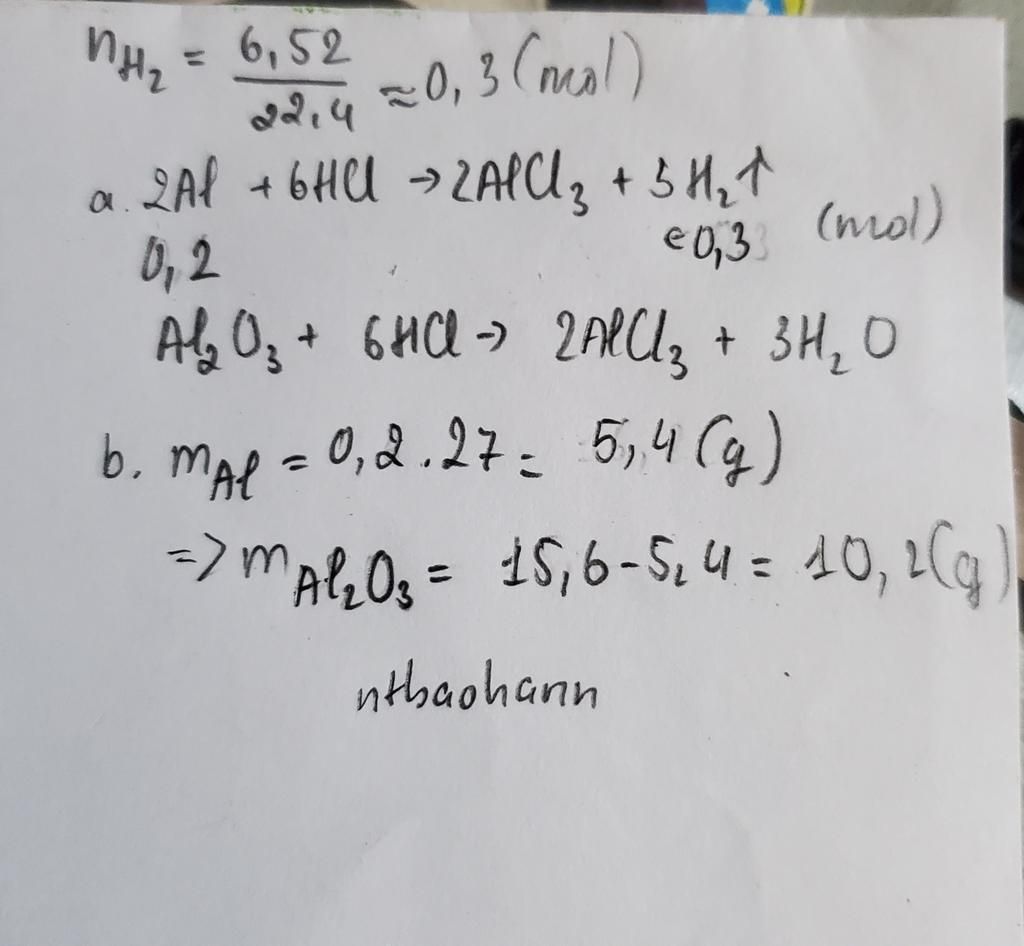 nH₂ = 6,52/22,4 ≈ 0,3 (mol)
a. 2Al + 6HCl → 2AlCl₃ + 3H₂↑
0,2 ←0,3 (mol)
Al₂O₃ + 6HCl → 2AlCl₃ + 3H₂O
b. mAl = 0,2.27 = 5,4 (g)
=> mAl₂O₃ = 15,6 - 5,4 = 10,2 (g)
ntbaohann